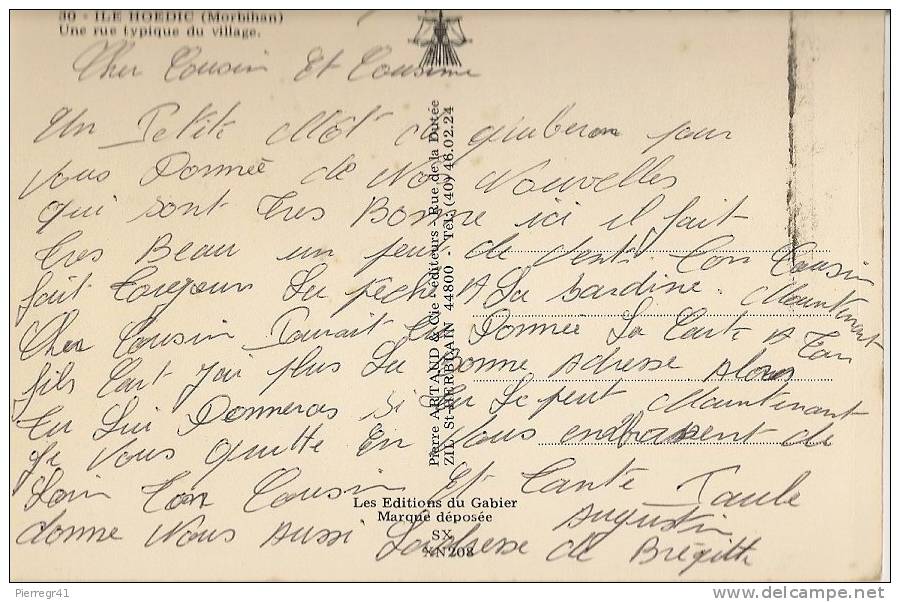 30 - ILE HOEDIC (Morbihan)
Une rue typique du village.
Cher Cousin Et Cousine
Un Petite Môt de quiberon pour
Vous Donnée de Nos Nouvelles
qui sont tres Bonne ici il fait
tres Beau un peu de vent. Ton Cousin
fait toujours La pêche A La sardine. Maintenant
Cher Cousin Pourait tu Donnée La Carte A Ton
fils Cart J'ai plus La Bonne Adresse Alors
tu Lui Donneras Si tu Le peut Maintenant
Je Vous quitte En Vous embrasent de
Loin Ton Cousin Et Tante Paule
Augustin
donne Nous Aussi Ladresse de Brégitte
Pierre ARTAUD & Cie - éditeurs - Rue de la Dutée
ZIL. St-HERBLAIN 44800 - Tél. (40) 46.02.24
Les Editions du Gabier
Marque déposée
SX
XN208
Pierregr41
delcampe.net